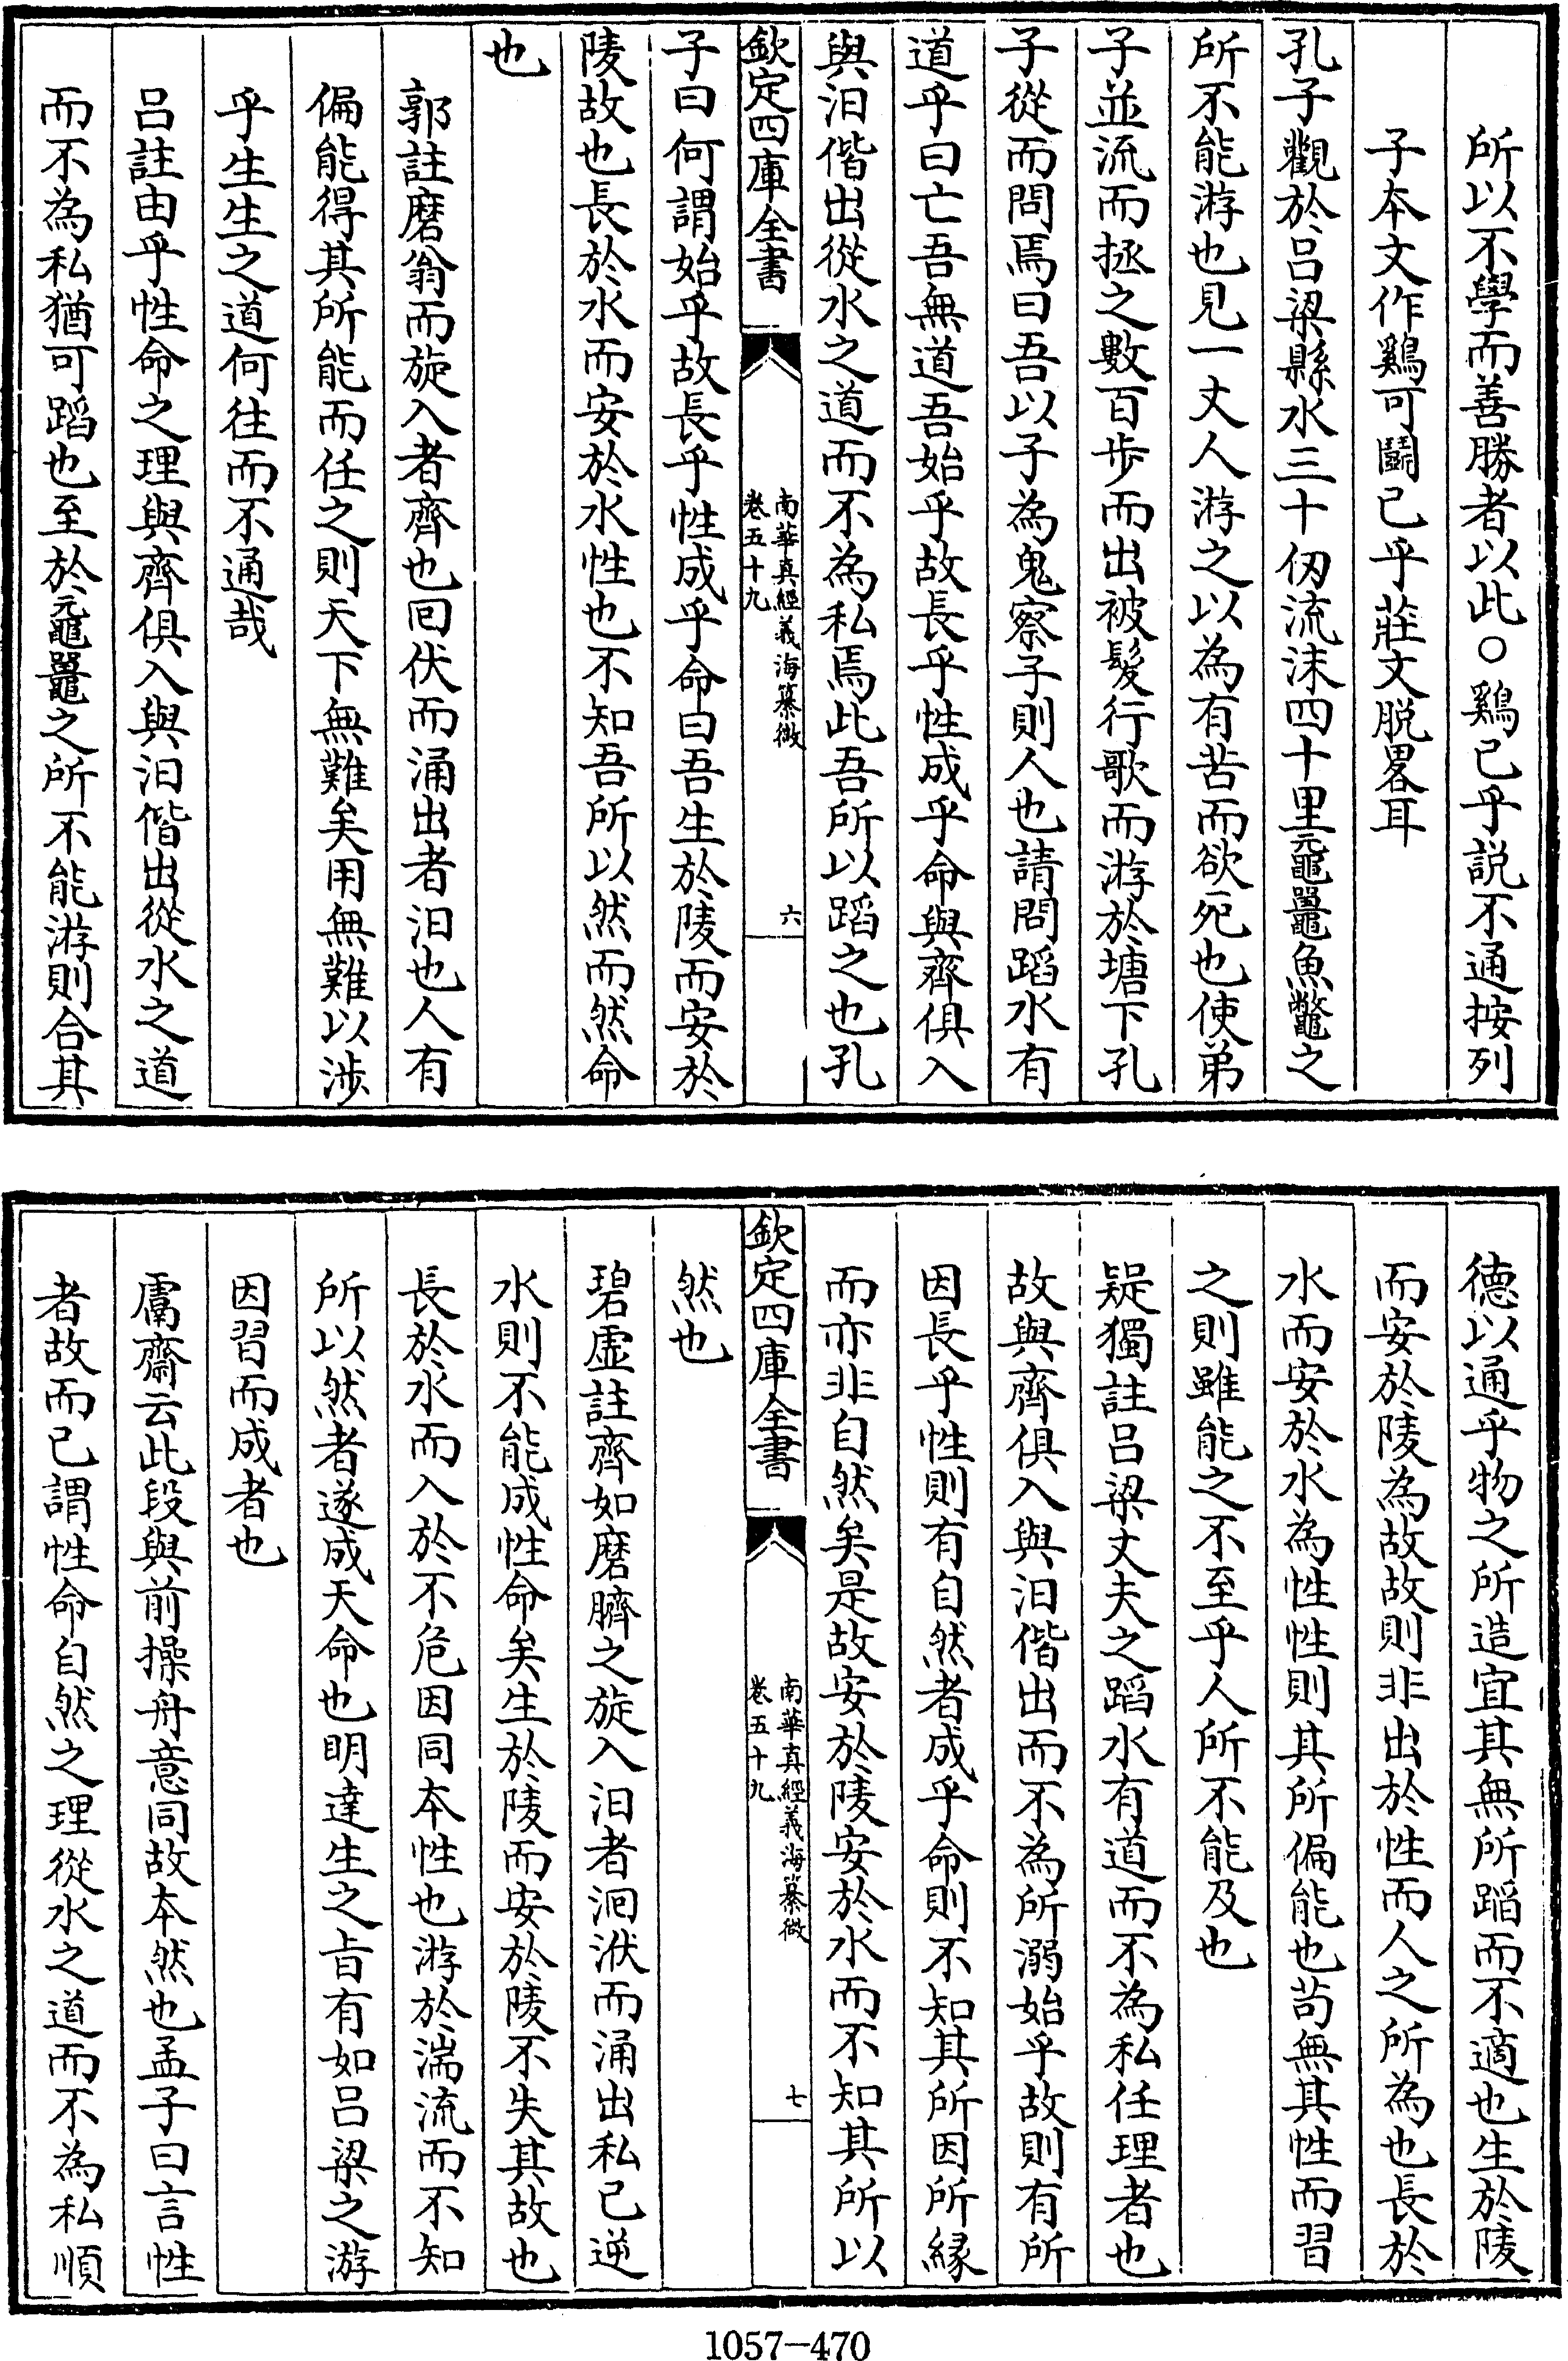 所以不學而善勝者以此○鷄已乎説不通按列
子本文作鷄可鬭已乎莊文脱畧耳
孔子觀於吕梁縣水三十仞流沫四十里黿鼉魚鼈之
所不能游也見一丈人游之以為有苦而欲死也使弟
子並流而拯之數百步而出被髮行歌而游於塘下孔
子從而問焉曰吾以子為鬼察子則人也請問蹈水有
道乎曰亡吾無道吾始乎故長乎性成乎命與齊俱入
與汩偕出從水之道而不為私焉此吾所以蹈之也孔
欽定四庫全書
南華真經義海纂微
卷五十九
六
子曰何謂始乎故長乎性成乎命曰吾生於陵而安於
陵故也長於水而安於水性也不知吾所以然而然命
也
郭註磨翁而旋入者齊也回伏而涌出者汩也人有
偏能得其所能而任之則天下無難矣用無難以涉
乎生生之道何往而不通哉
吕註由乎性命之理與齊俱入與汩偕出從水之道
而不為私猶可蹈也至於黿鼉之所不能游則合其
德以通乎物之所造宜其無所蹈而不適也生於陵
而安於陵為故故則非出於性而人之所為也長於
水而安於水為性性則其所偏能也苟無其性而習
之則雖能之不至乎人所不能及也
疑獨註吕梁丈夫之蹈水有道而不為私任理者也
故與齊俱入與汩偕出而不為所溺始乎故則有所
因長乎性則有自然者成乎命則不知其所因所緣
而亦非自然矣是故安於陵安於水而不知其所以
欽定四庫全書
南華真經義海纂微
卷五十九
七
然也
碧虛註齊如磨臍之旋入汩者洄洑而涌出私已逆
水則不能成性命矣生於陵而安於陵不失其故也
長於水而入於不危因同本性也游於湍流而不知
所以然者遂成天命也明達生之㫖有如吕梁之游
因習而成者也
鬳齋云此段與前操舟意同故本然也孟子曰言性
者故而已謂性命自然之理從水之道而不為私順
1057-470